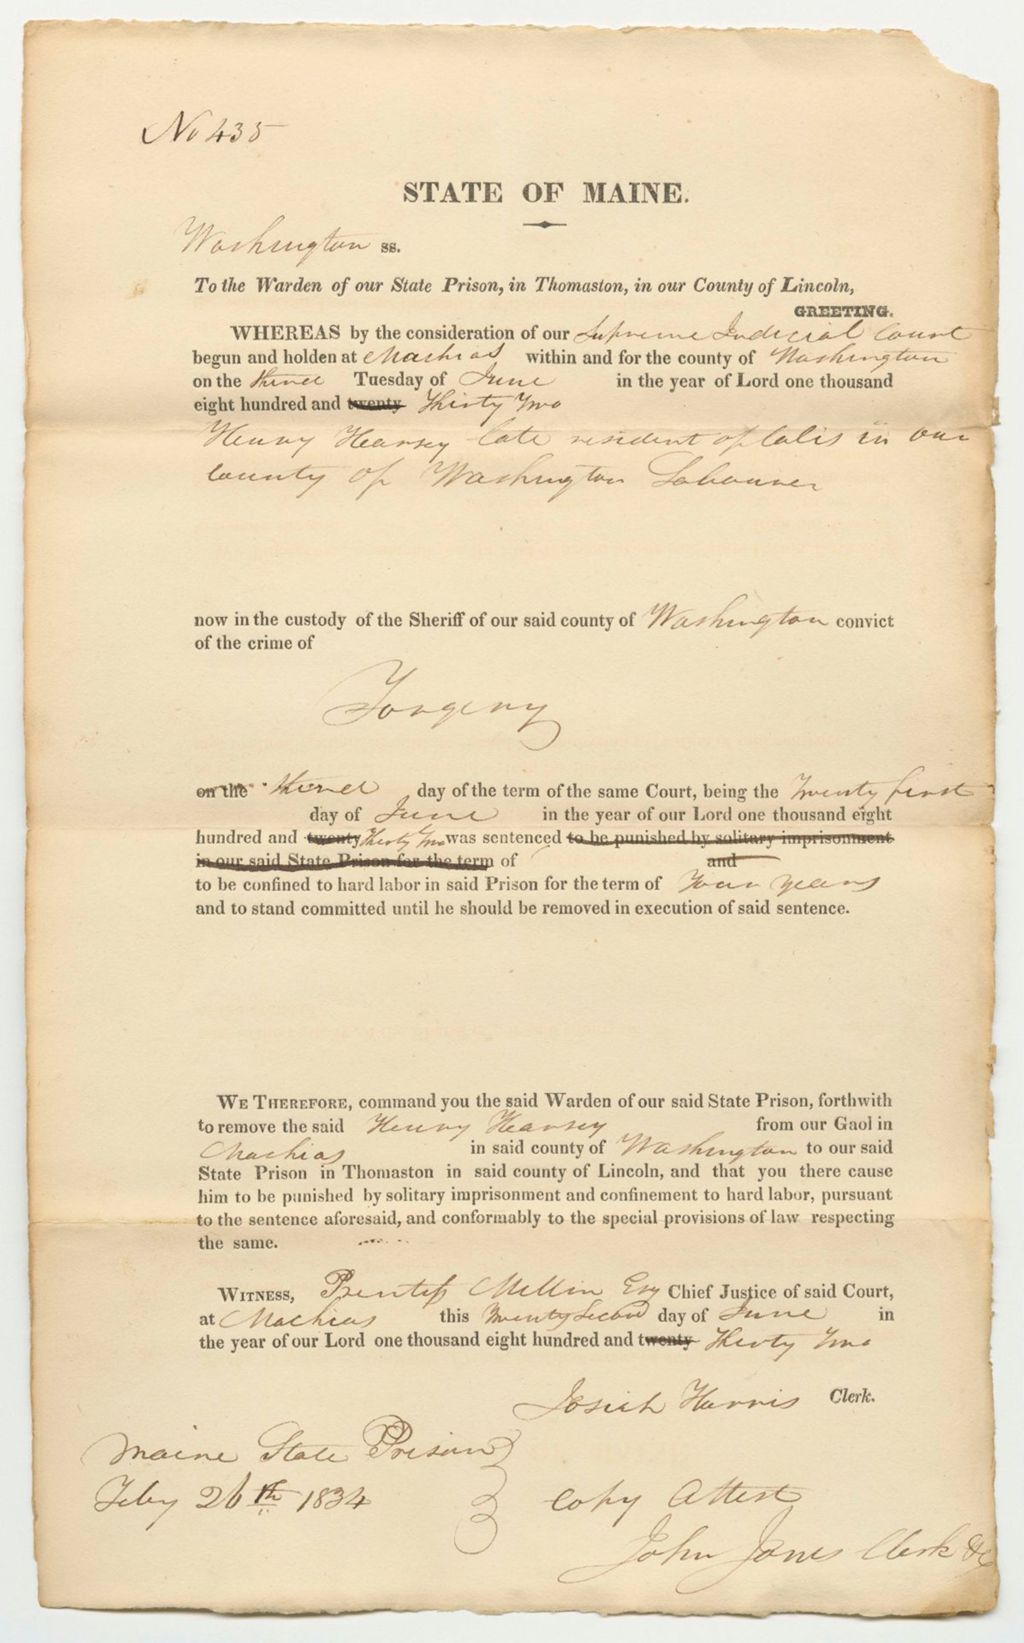 No 435
STATE OF MAINE.
Washington ss.
To the Warden of our State Prison, in Thomaston, in our County of Lincoln,
GREETING.
WHEREAS by the consideration of our Supreme Judicial Court
begun and holden at Machias within and for the county of Washington
on the third Tuesday of June in the year of Lord one thousand
eight hundred and twenty Thirty Two
Henry Hearsey late resident of Calis in our
County of Washington Labourer
now in the custody of the Sheriff of our said county of Washington convict
of the crime of
Forgery
on the third day of the term of the same Court, being the Twenty first
day of June in the year of our Lord one thousand eight
hundred and twenty Thirty Two was sentenced to be punished by solitary imprisonment
in our said State Prison for the term of and
to be confined to hard labor in said Prison for the term of Four years
and to stand committed until he should be removed in execution of said sentence.
WE THEREFORE, command you the said Warden of our said State Prison, forthwith
to remove the said Henry Hearsey from our Gaol in
Machias in said county of Washington to our said
State Prison in Thomaston in said county of Lincoln, and that you there cause
him to be punished by solitary imprisonment and confinement to hard labor, pursuant
to the sentence aforesaid, and conformably to the special provisions of law respecting
the same.
WITNESS, Prentiss Mellin Esq Chief Justice of said Court,
at Machias this Twenty Second day of June in
the year of our Lord one thousand eight hundred and twenty Thirty Two
Josiah Harris Clerk.
Maine State Prison
Feby 26th 1834
Copy Attest
John Jones Clerk &c